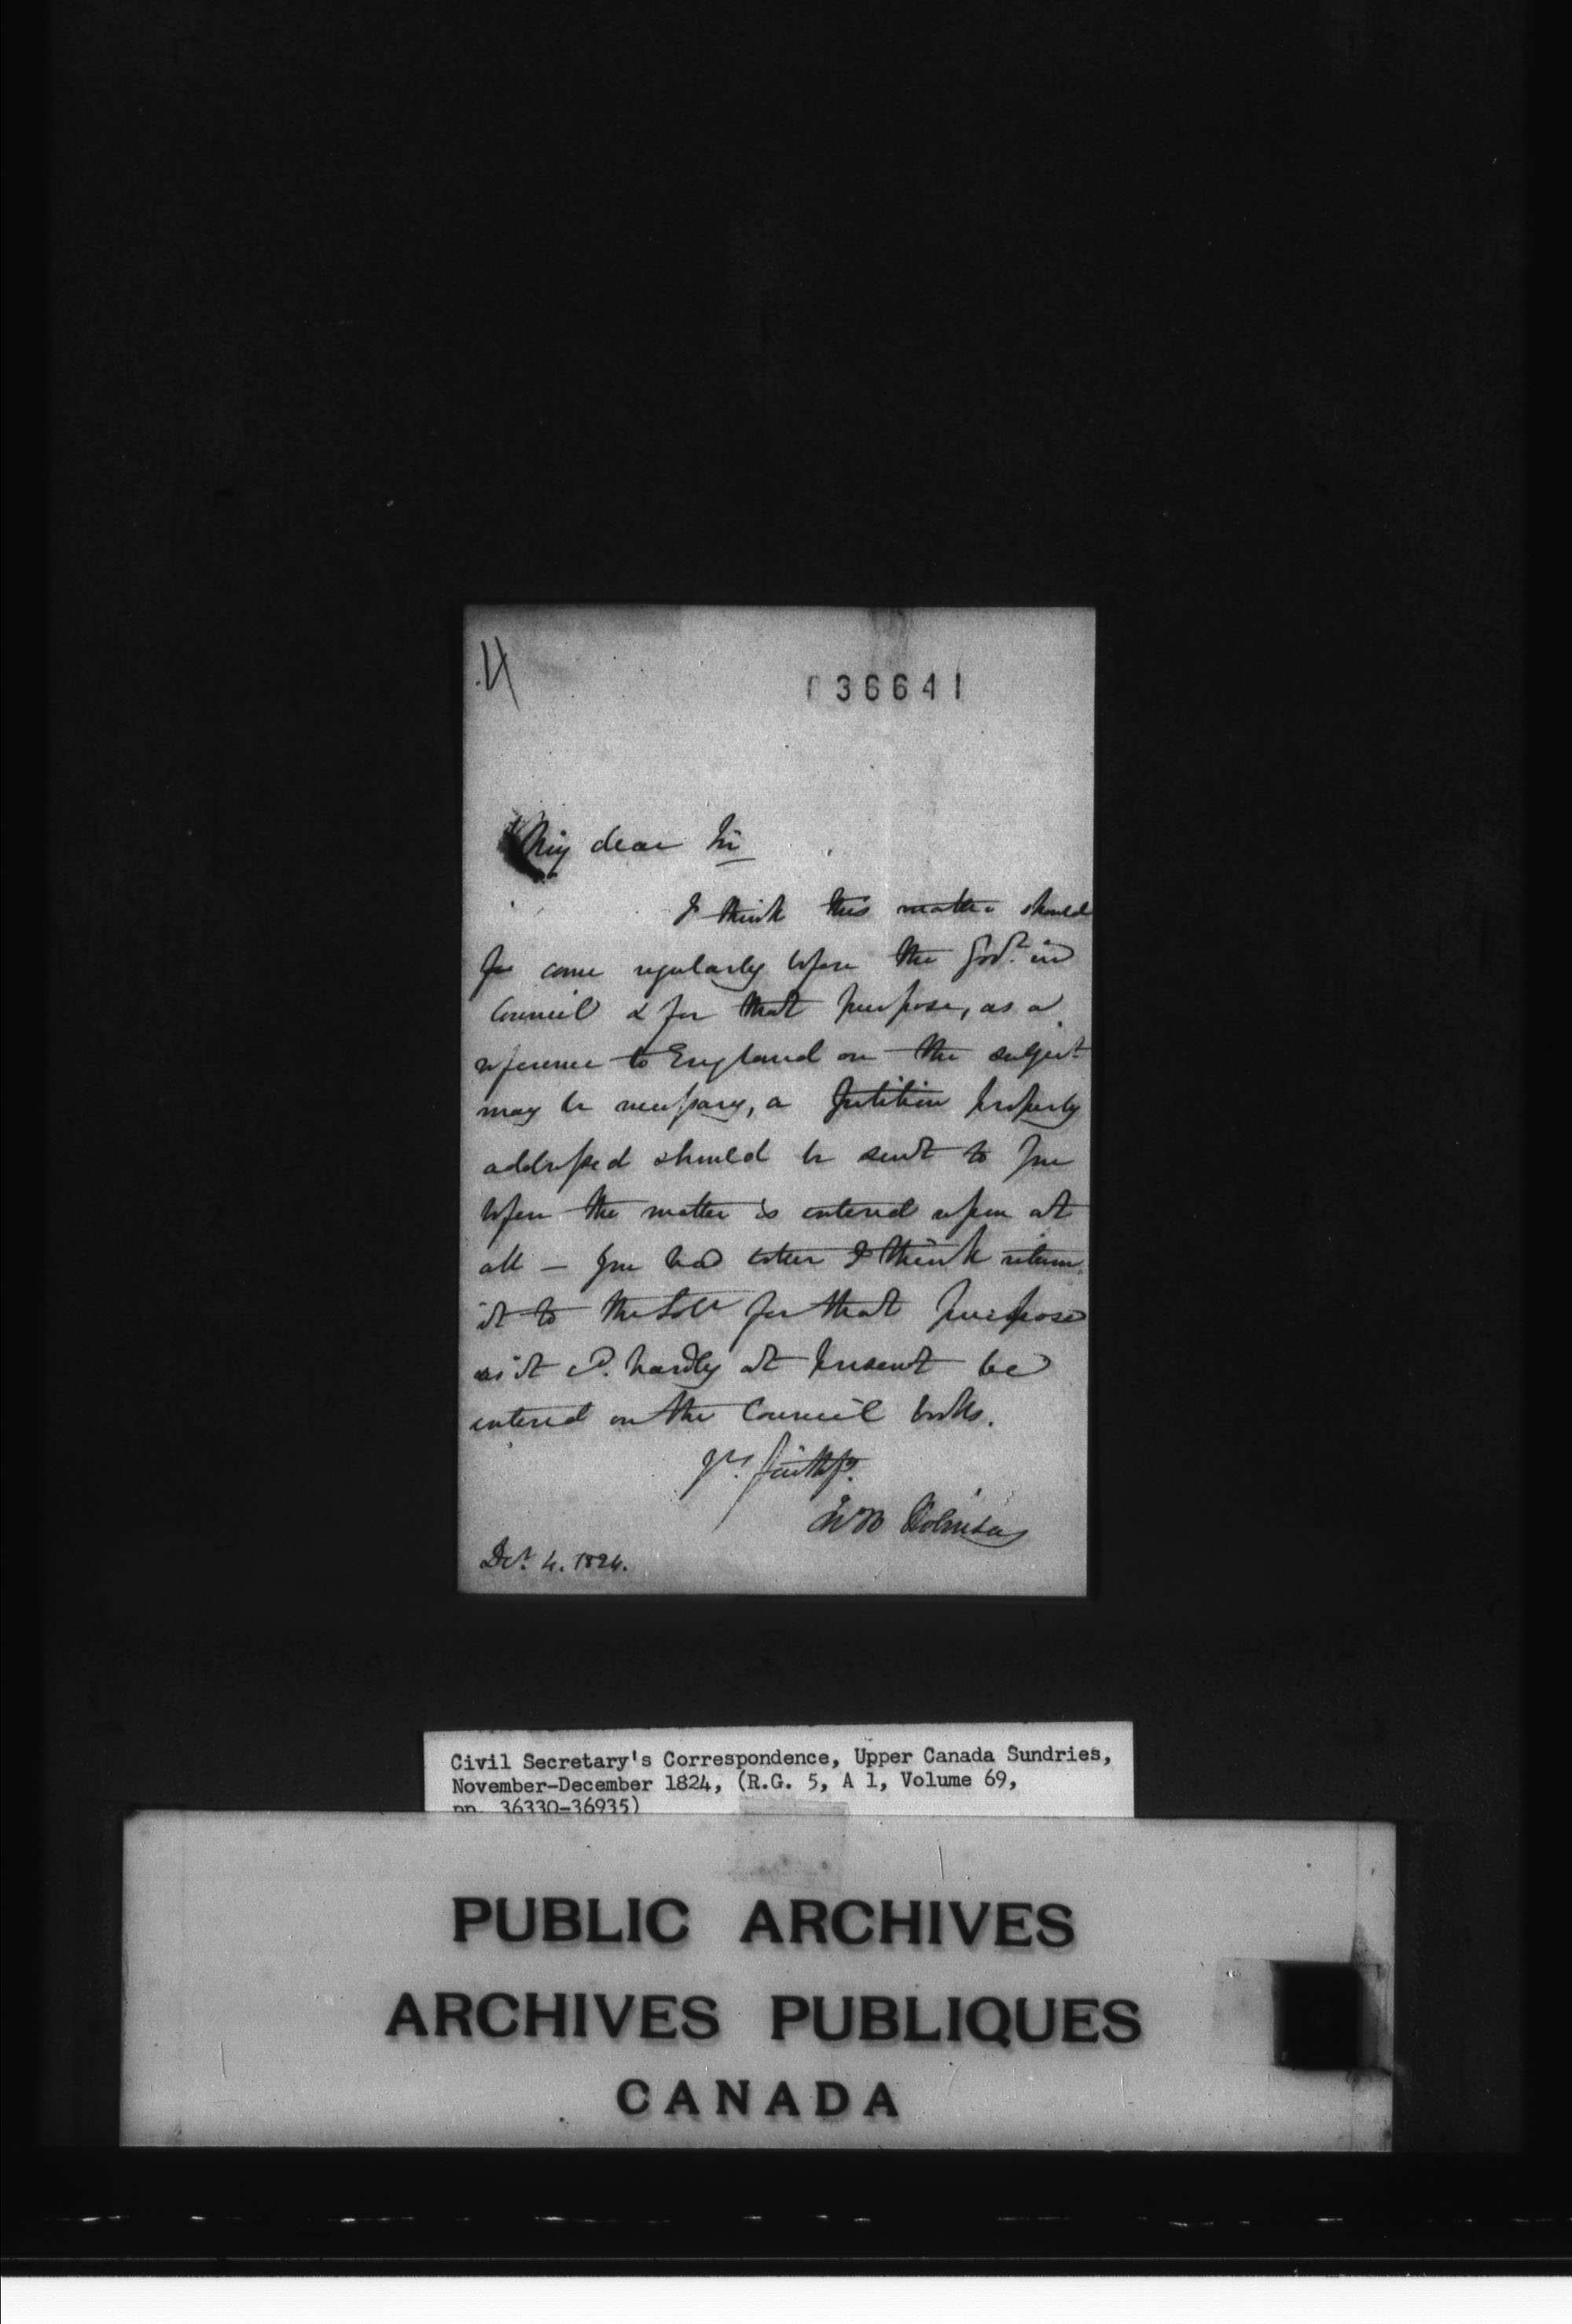 4
036641
My dear Sir
I think this matter should
come regularly before the Govr. in
Council & for that purpose, as a
reference to England on the subject
may be necessary, a petition properly
addressed should be sent to you
before the matter is entered upon at
all — you had better I think return
it to the Solr for that purpose
as it cd. hardly at present be
entered on the Council books.
Yrs. faithfy.
Robinson
Decr. 4. 1824.
Civil Secretary's Correspondence, Upper Canada Sundries,
November-December 1824, (R.G. 5, A 1, Volume 69,
pp. 36330-36935)
PUBLIC ARCHIVES
ARCHIVES PUBLIQUES
CANADA